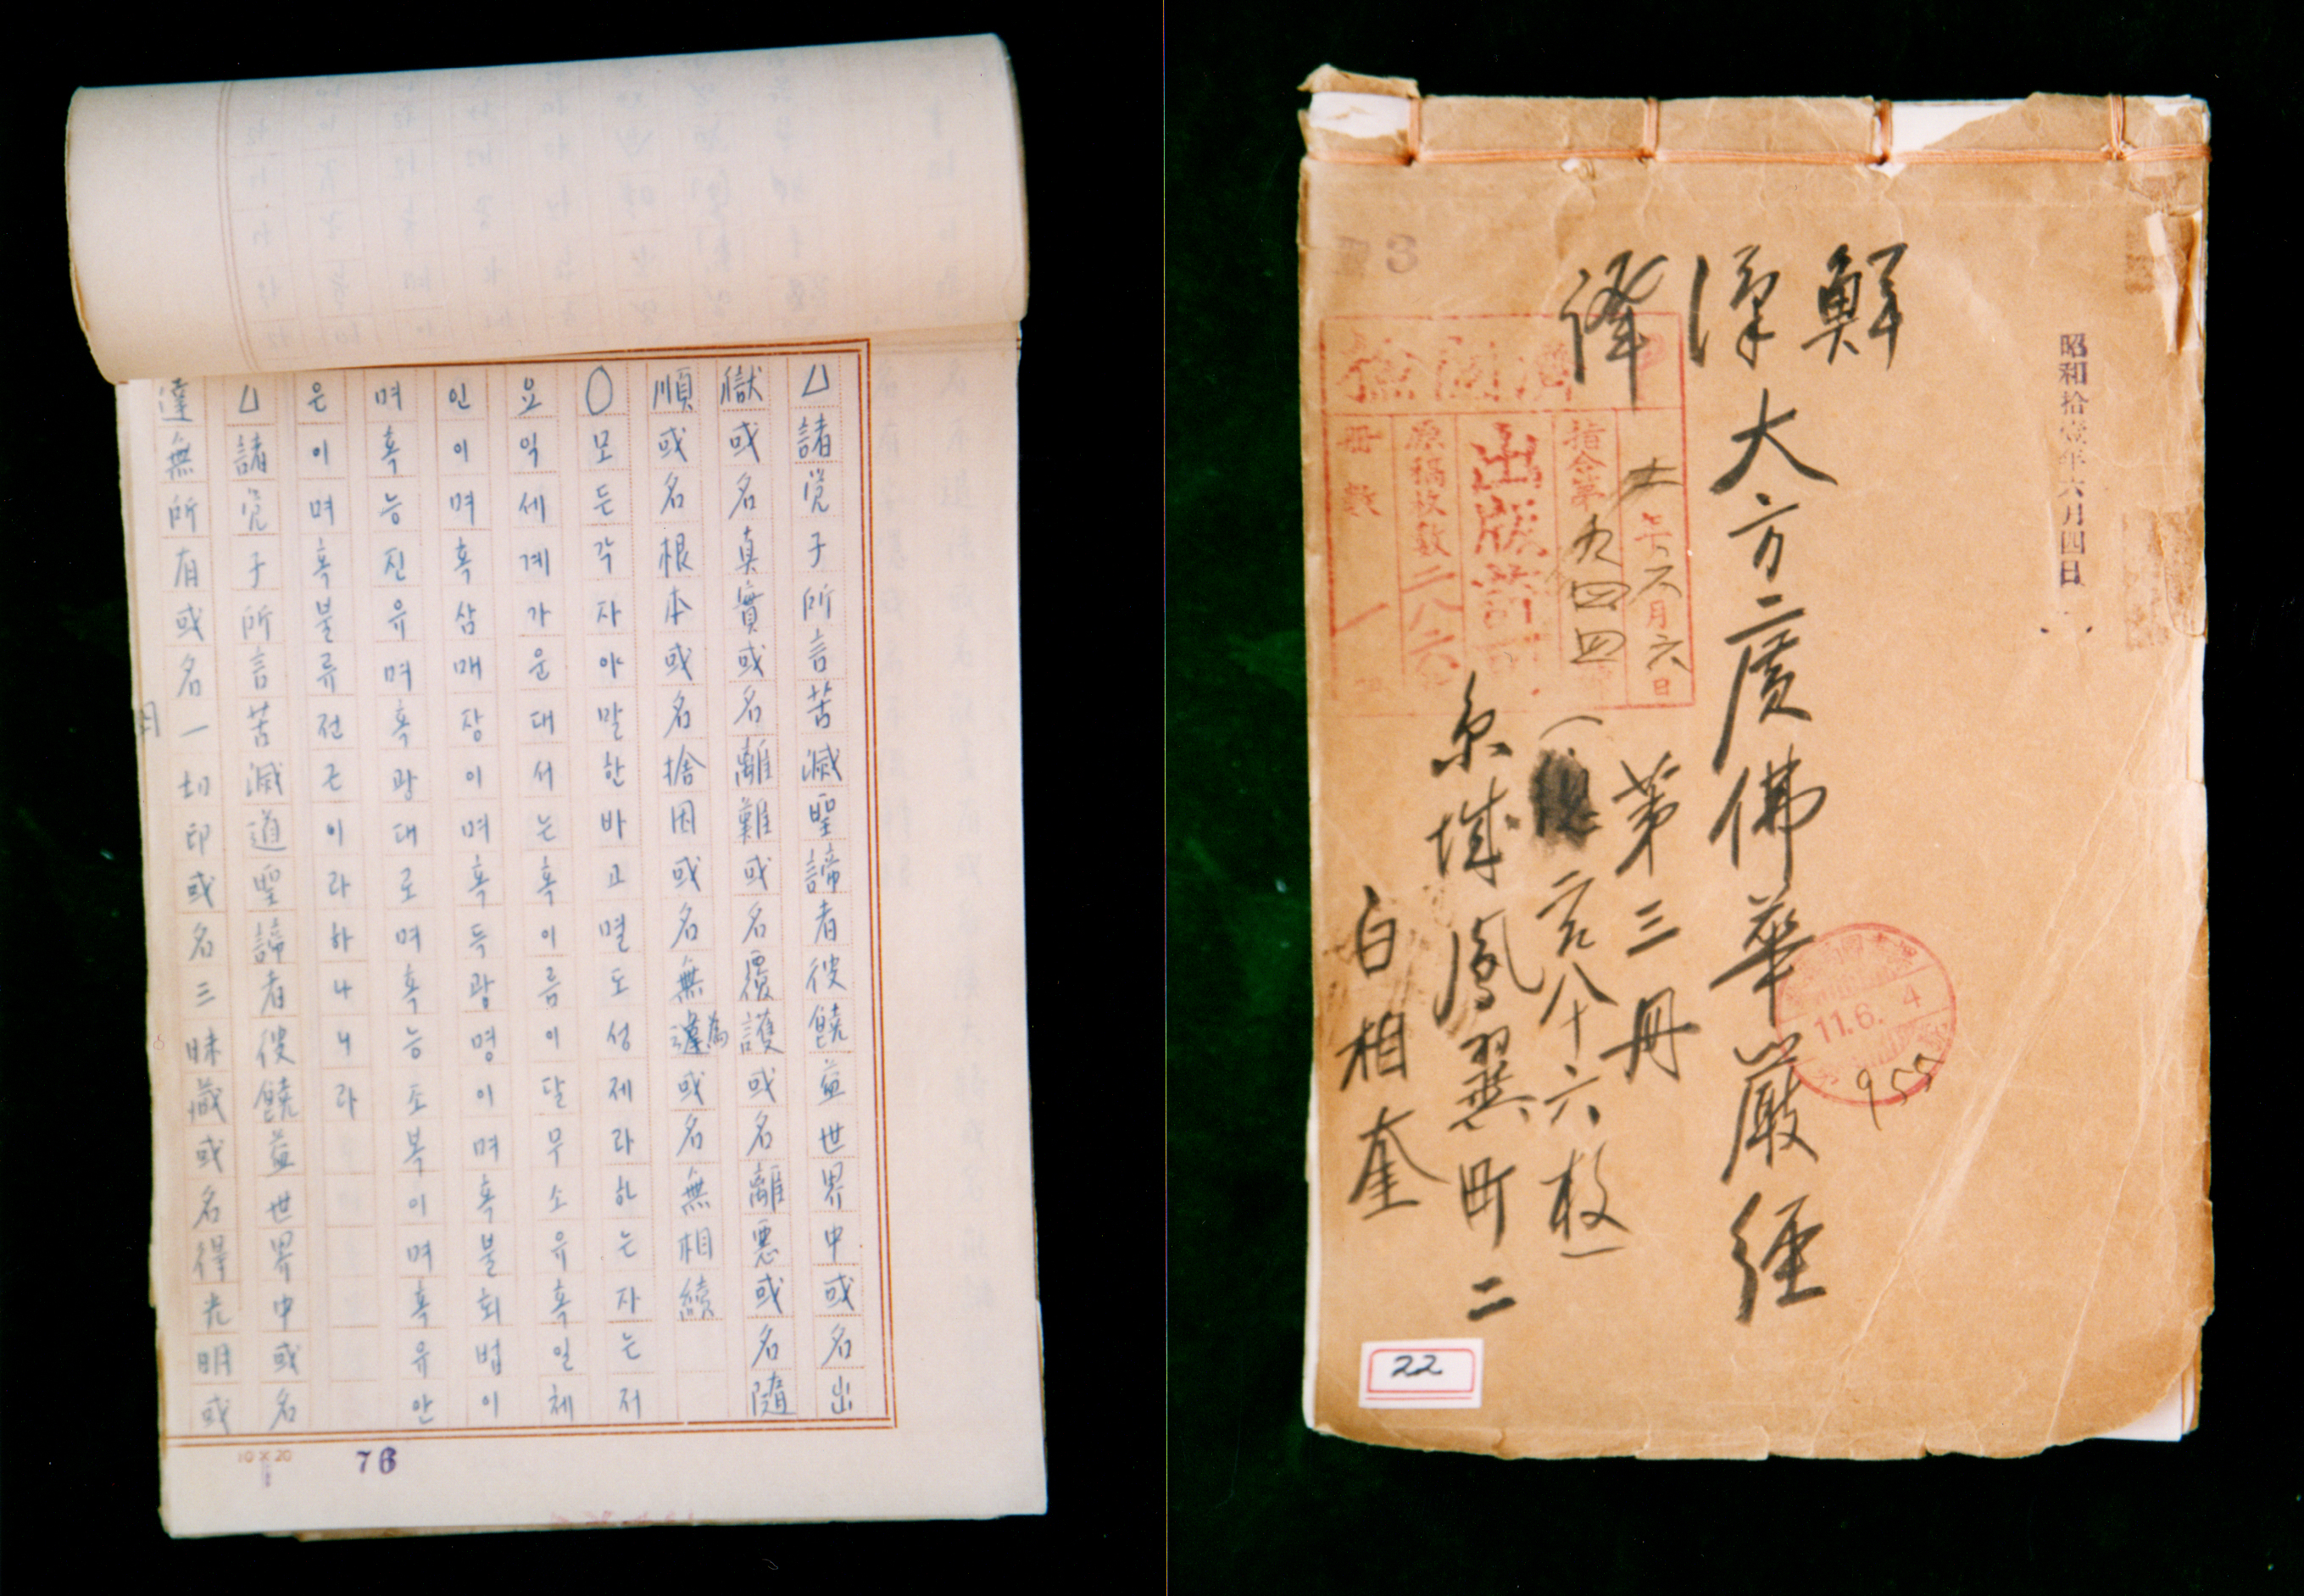 △諸覺子所言苦滅聖諦者彼饒益世界中或名出
獄或名真實或名離難或名覆護或名離惡或名隨
順或名根本或名捨因或名無為或名無相續
○모든각자야말한바고멸도성제라하는자는저
요익세계가운대서는혹이름이달무소유혹일체
인이며혹삼매장이며혹득광명이며혹불회법이
며혹능진유며혹광대로며혹능소복이며혹유안
은이며혹불류전근이라하나니라
△諸覺子所言苦滅道聖諦者彼饒益世界中或名
達無所有或名一切印或名三昧藏或名得光明或
10×20
76
昭和拾壹年六月四日
鮮漢譯
大方廣佛華嚴經
第三冊
二百八十六枚
京城鳳翼町二
白相奎
出版許可
指令第九四四
十一年六月六日
原稿枚數二八六
冊數一
11.6.4
955
3
22